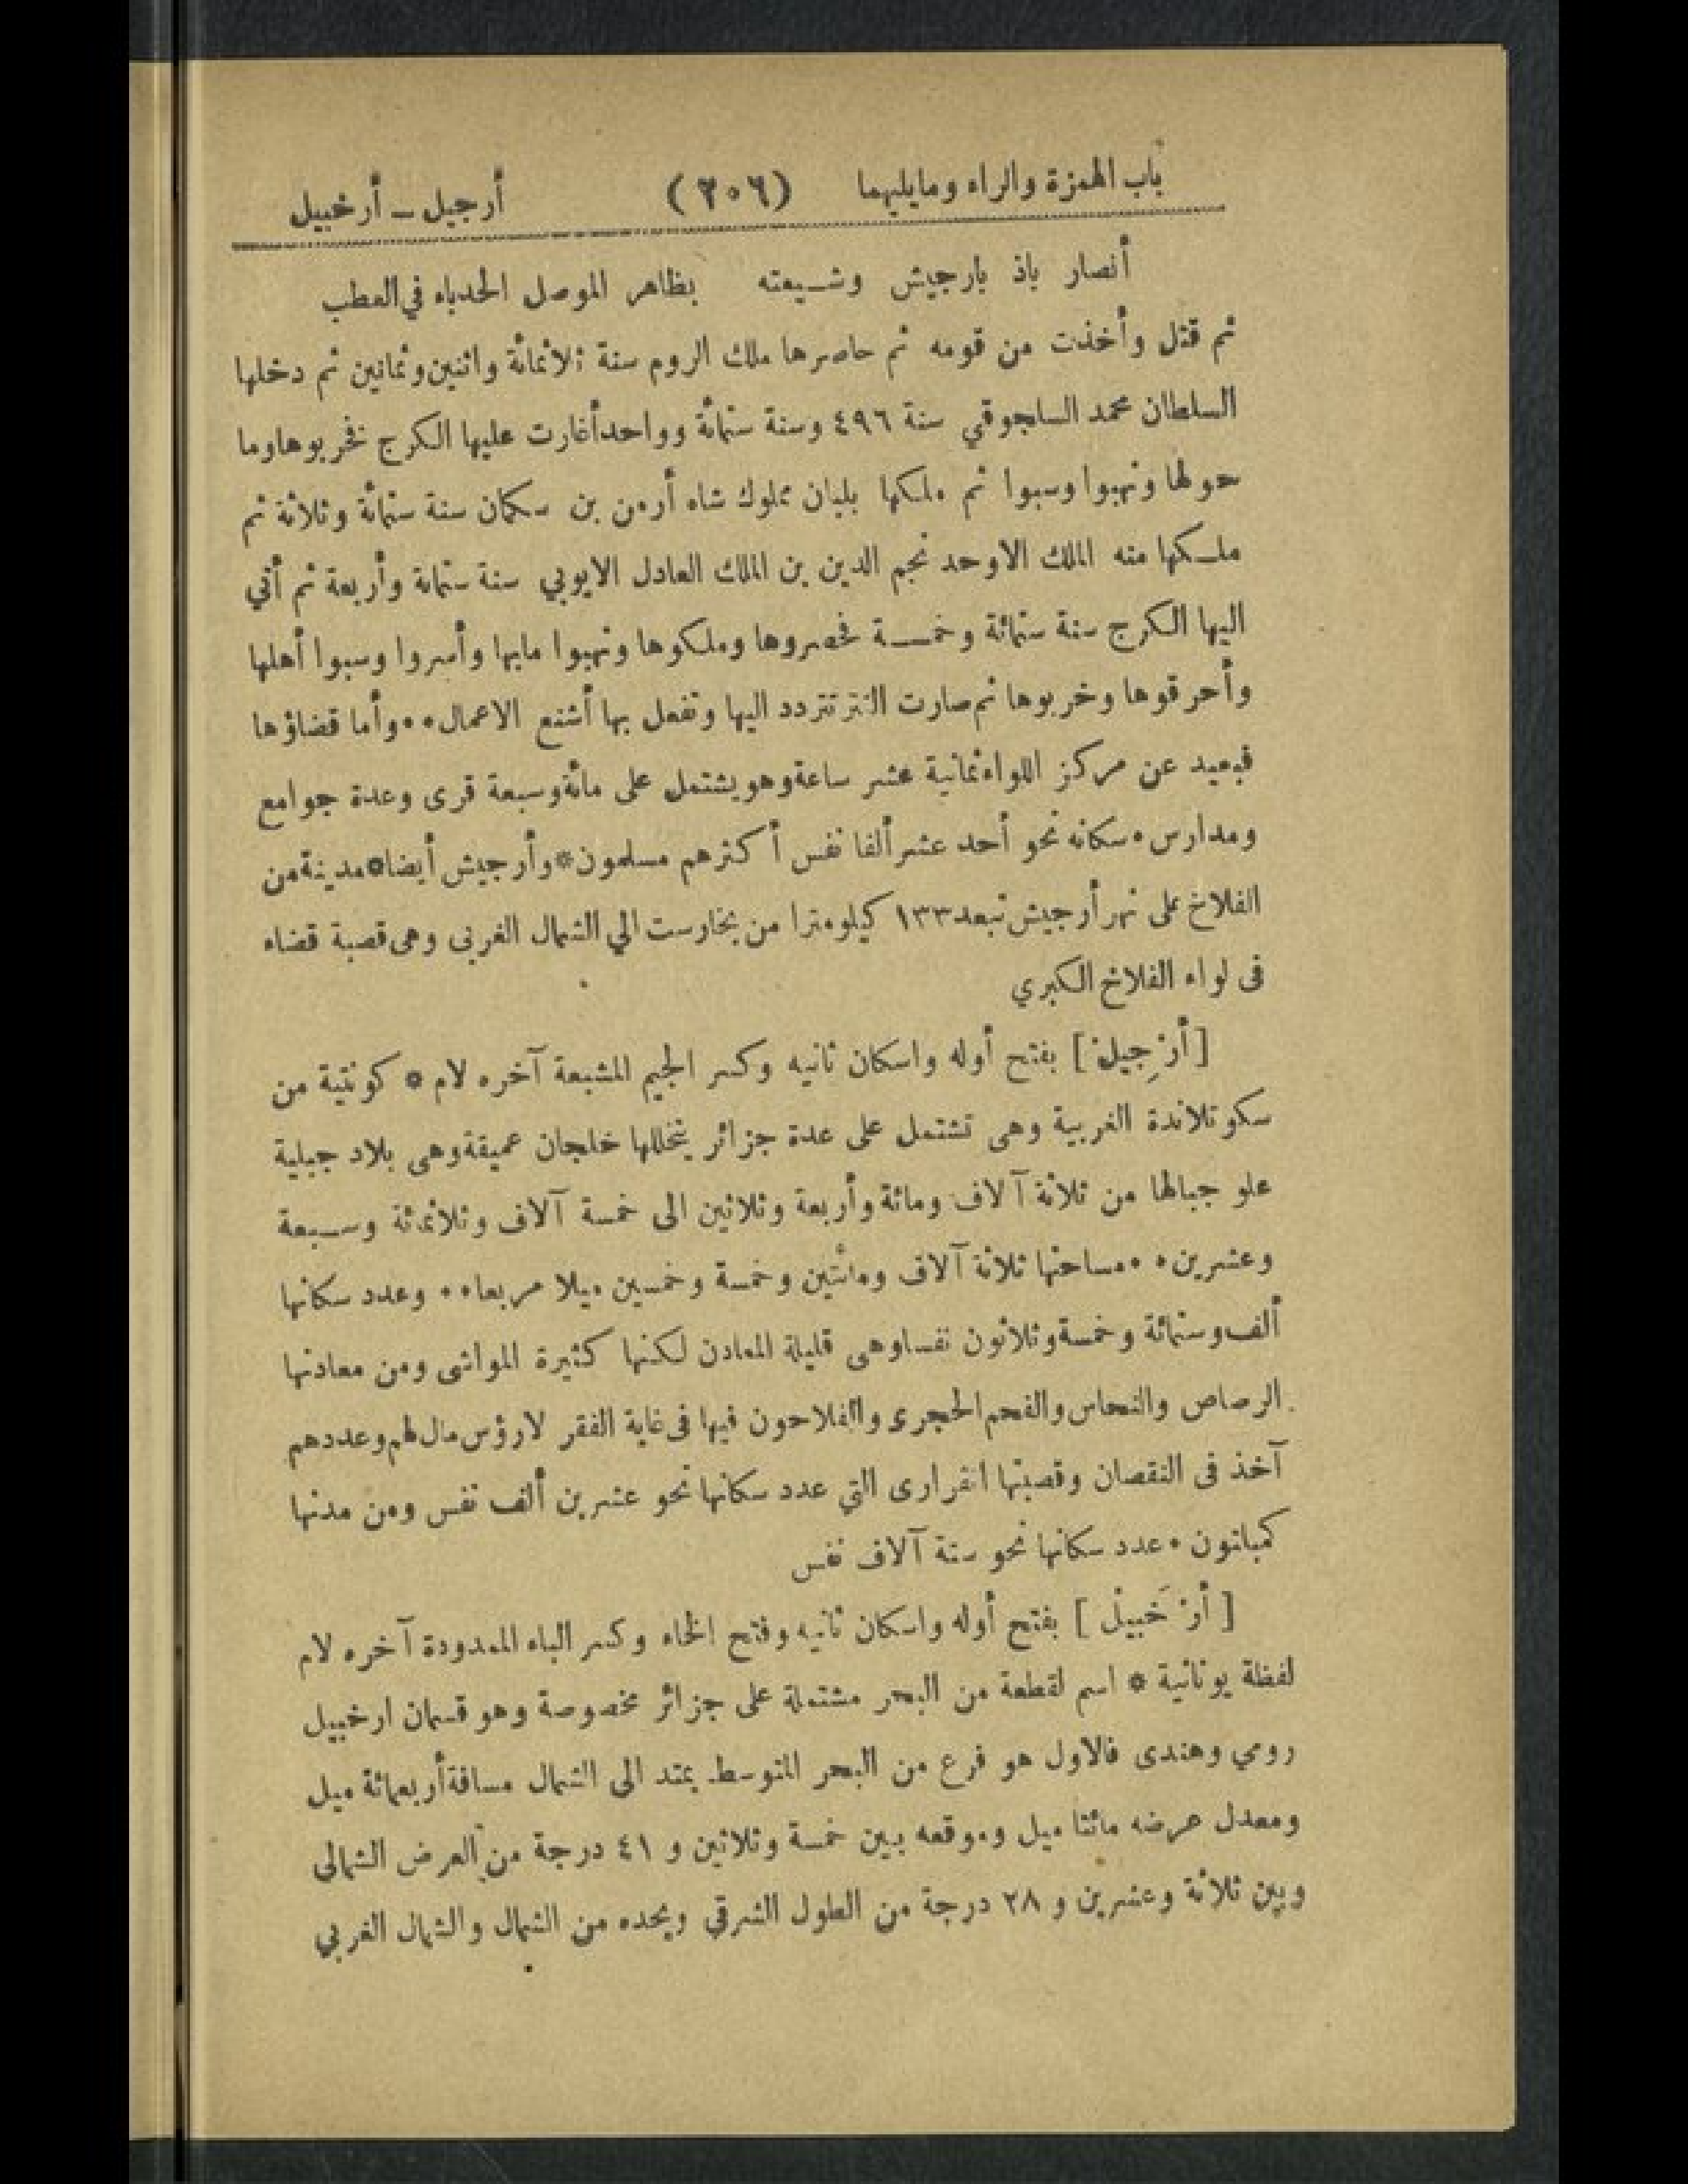 باب الهمزة والراء ومايليهما (٢٠٦) أرجيل ــ أرخبيل
أنصار باذ بارجيش وشيعته بظاهر الموصل الحدباء في العطب
ثم قتل وأخذت من قومه ثم حاصرها ملك الروم سنة ثلاثمائة واثنين وثمانين ثم دخلها
السلطان محمد السلجوقي سنة ٤٩٦ وسنة ستمائة وواحد أغارت عليها الكرج فخربوها وما
حولها ونهبوا وسبوا ثم ملكها بلبان مملوك شاه أرمن بن سكمان سنة ستمائة وثلاثة ثم
ملكها منه الملك الاوحد نجم الدين بن الملك العادل الايوبي سنة ستمائة وأربعة ثم أتي
اليها الكرج سنة ستمائة وخمسة فحصروها وملكوها ونهبوا مابها وأسروا وسبوا أهلها
وأحرقوها وخربوها ثم صارت التتر تتردد اليها وتفعل بها أشنع الاعمال٠٠ وأما قضاؤها
فبعيد عن مركز اللواء ثمانية عشر ساعة وهو يشتمل على مائة وسبعة قرى وعدة جوامع
ومدارس٠ سكانه نحو أحد عشر ألفا نفس أكثرهم مسلمون * وأرجيش أيضا * مدينة من
الفلاخ على نهر أرجيش تبعد ١٣٣ كيلومترا من بخارست الي الشمال الغربى وهى قصبة قضاء
فى لواء الفلاخ الكبري
[أرْجِيلْ] بفتح أوله واسكان ثانيه وكسر الجيم المشبعة آخره لام * كونتية من
سكوتلاندة الغربية وهى تشتمل على عدة جزائر يتخللها خلجان عميقة وهى بلاد جبلية
علو جبالها من ثلاثة آلاف ومائة وأربعة وثلاثين الى خمسة آلاف وثلاثمائة وسبعة
وعشرين٠٠ مساحتها ثلاثة آلاف ومائتين وخمسة وخمسين ميلا مربعا٠٠ وعدد سكانها
ألف وستمائة وخمسة وثلاثون نفسا وهى قليلة المعادن لكنها كثيرة المواشى ومن معادنها
الرصاص والنحاس والفحم الحجرى والفلاحون فيها فى غاية الفقر لا رؤس مال لهم وعددهم
آخذ فى النقصان وقصبتها انفرارى التي عدد سكانها نحو عشرين ألف نفس ومن مدنها
كمبلتون٠ عدد سكانها نحو ستة آلاف نفس
[أرْخَبيلْ] بفتح أوله واسكان ثانيه وفتح الخاء وكسر الباء الممدودة آخره لام
لفظة يونانية * اسم لقطعة من البحر مشتملة على جزائر مخصوصة وهو قسمان ارخبيل
رومي وهندى فالاول هو فرع من البحر المتوسط يمتد الى الشمال مسافة أربعمائة ميل
ومعدل عرضه مائتا ميل وموقعه بين خمسة وثلاثين و ٤١ درجة من العرض الشمالى
وبين ثلاثة وعشرين و ٢٨ درجة من الطول الشرقي ويحده من الشمال والشمال الغربي